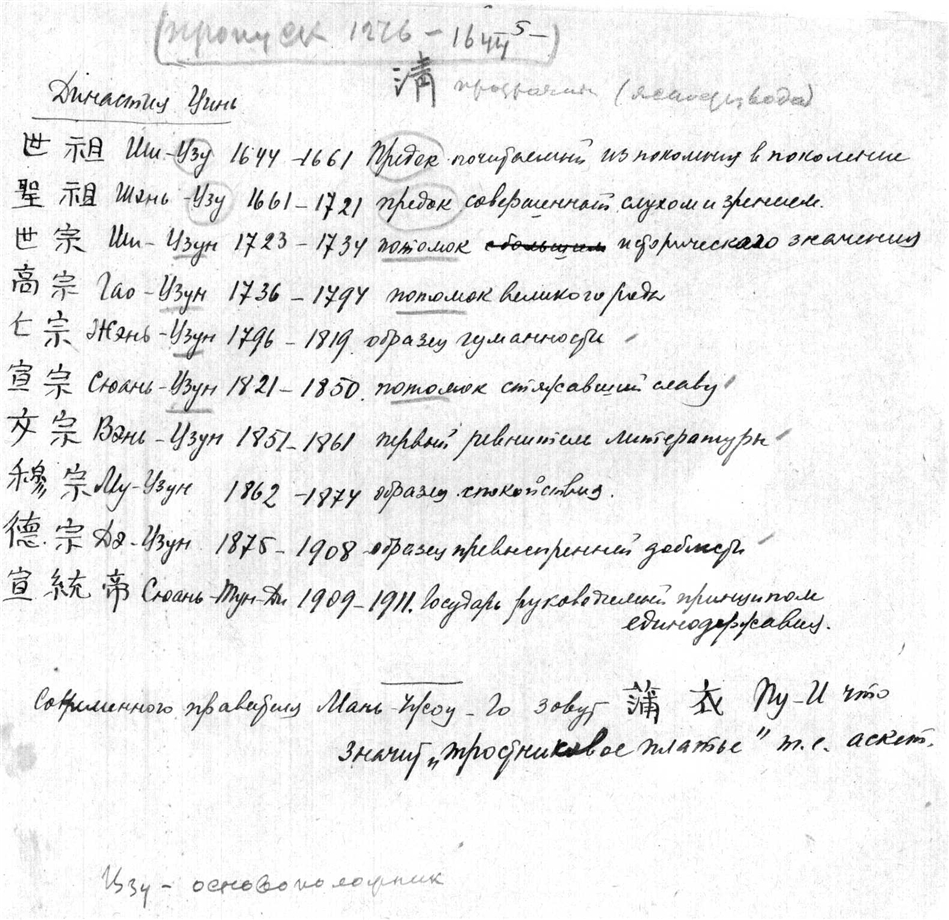 (пропуск 1226 – 1644 5 –)
清 прозрачн (ясность, вода)
Династия Цинь
世祖 Ши-Цзу 1644 – 1661 Предок почитаемый из поколения в поколение
聖祖 Шэнь-Цзу 1661 – 1721 предок совершенный слухом и зрением.
世宗 Ши-Цзун 1723 – 1734 потомок исторического значения
高宗 Гао-Цзун 1736 – 1794 потомок великого рода
仁宗 Жэнь-Цзун 1796 – 1819. образец гуманности
宣宗 Сюань-Цзун 1821 – 1850. потомок стяжавший славу
文宗 Вэнь-Цзун 1851 – 1861 первый ревнитель литературы
穆宗 Му-Цзун 1862 – 1874 образец спокойствия.
德宗 Дэ-Цзун 1875 – 1908 – образец превыспренней доблести
宣統帝 Сюань-Тун-Ди 1909 – 1911. Государь руководимый принципом
единодержавия.
Современного правителя Мань-Чжоу-Го зовут 蒲衣 Пу-И что
значит „тростниковое платье" т.е. аскет.
Цзу – основоположник